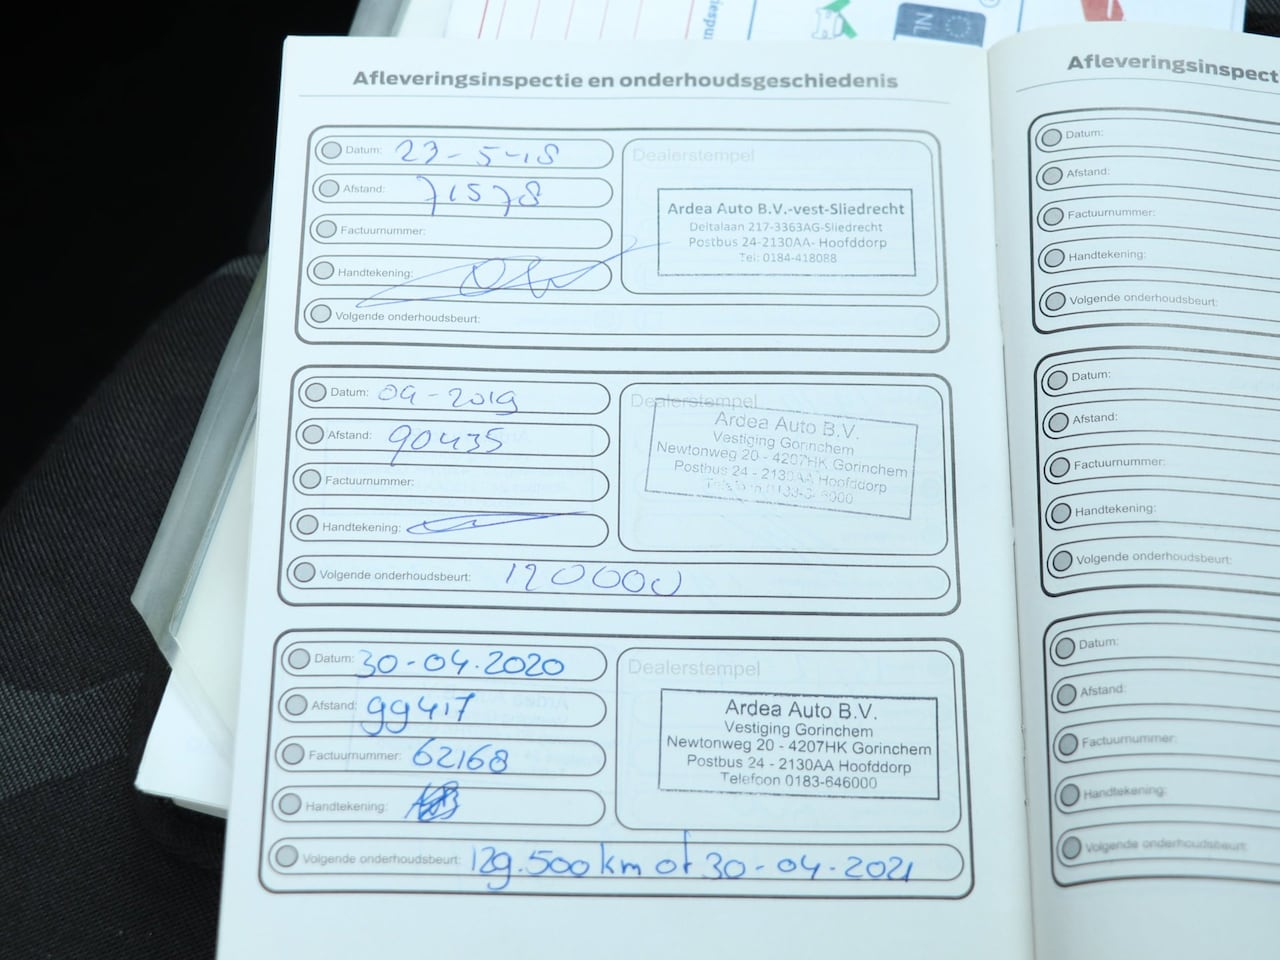 NL
Afleveringsinspectie en onderhoudsgeschiedenis
Datum: 23-5-18
Afstand: 71578
Factuurnummer:
Handtekening:
Volgende onderhoudsbeurt:
Dealerstempel
Ardea Auto B.V.-vest-Sliedrecht
Deltalaan 217-3363AG-Sliedrecht
Postbus 24-2130AA- Hoofddorp
Tel: 0184-418088
Datum: 04-2019
Afstand: 90435
Factuurnummer:
Handtekening:
Volgende onderhoudsbeurt: 120000
Dealerstempel
Ardea Auto B.V.
Vestiging Gorinchem
Newtonweg 20 - 4207HK Gorinchem
Postbus 24 - 2130AA Hoofddorp
Datum: 30-04.2020
Afstand: 99417
Factuurnummer: 62168
Handtekening:
Volgende onderhoudsbeurt: 129.500 km of 30-04-2021
Dealerstempel
Ardea Auto B.V.
Vestiging Gorinchem
Newtonweg 20 - 4207HK Gorinchem
Postbus 24 - 2130AA Hoofddorp
Telefoon 0183-646000
Afleveringsinspect
Datum:
Afstand:
Factuurnummer:
Handtekening:
Volgende onderhoudsbeurt:
Datum:
Afstand:
Factuurnummer:
Handtekening:
Volgende onderhoudsbeurt:
Datum:
Afstand:
Factuurnummer:
Handtekening:
Volgende onderhoudsbeurt: